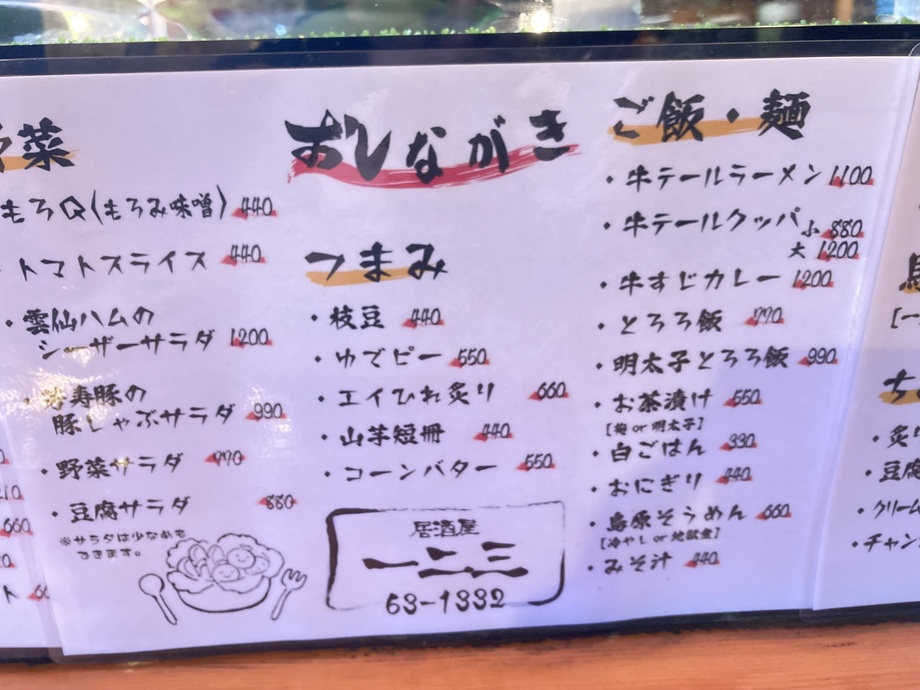 菜
もろQ(もろみ味噌) 440
・トマトスライス 440
・雲仙ハムの
シーザーサラダ 1200
寿豚の
豚しゃぶサラダ 990
・野菜サラダ 770
・豆腐サラダ 880
※サラダは少なめも
できます。
660
おしながき
つまみ
・枝豆 440
・ゆでピー 550
・エイひれ炙り 660
・山芋短冊 440
・コーンバター 550
居酒屋
一二三
63-1332
ご飯・麺
・牛テールラーメン 1100
・牛テールクッパ 小 880
大 1200
・牛すじカレー 1200
・とろろ飯 770
・明太子とろろ飯 990
・お茶漬け 550
[梅 or 明太子]
・白ごはん 330
・おにぎり 440
・島原そうめん 660
[冷やし or 地獄煮]
・みそ汁 440
・炙
・豆腐
・クリーム
・チャン